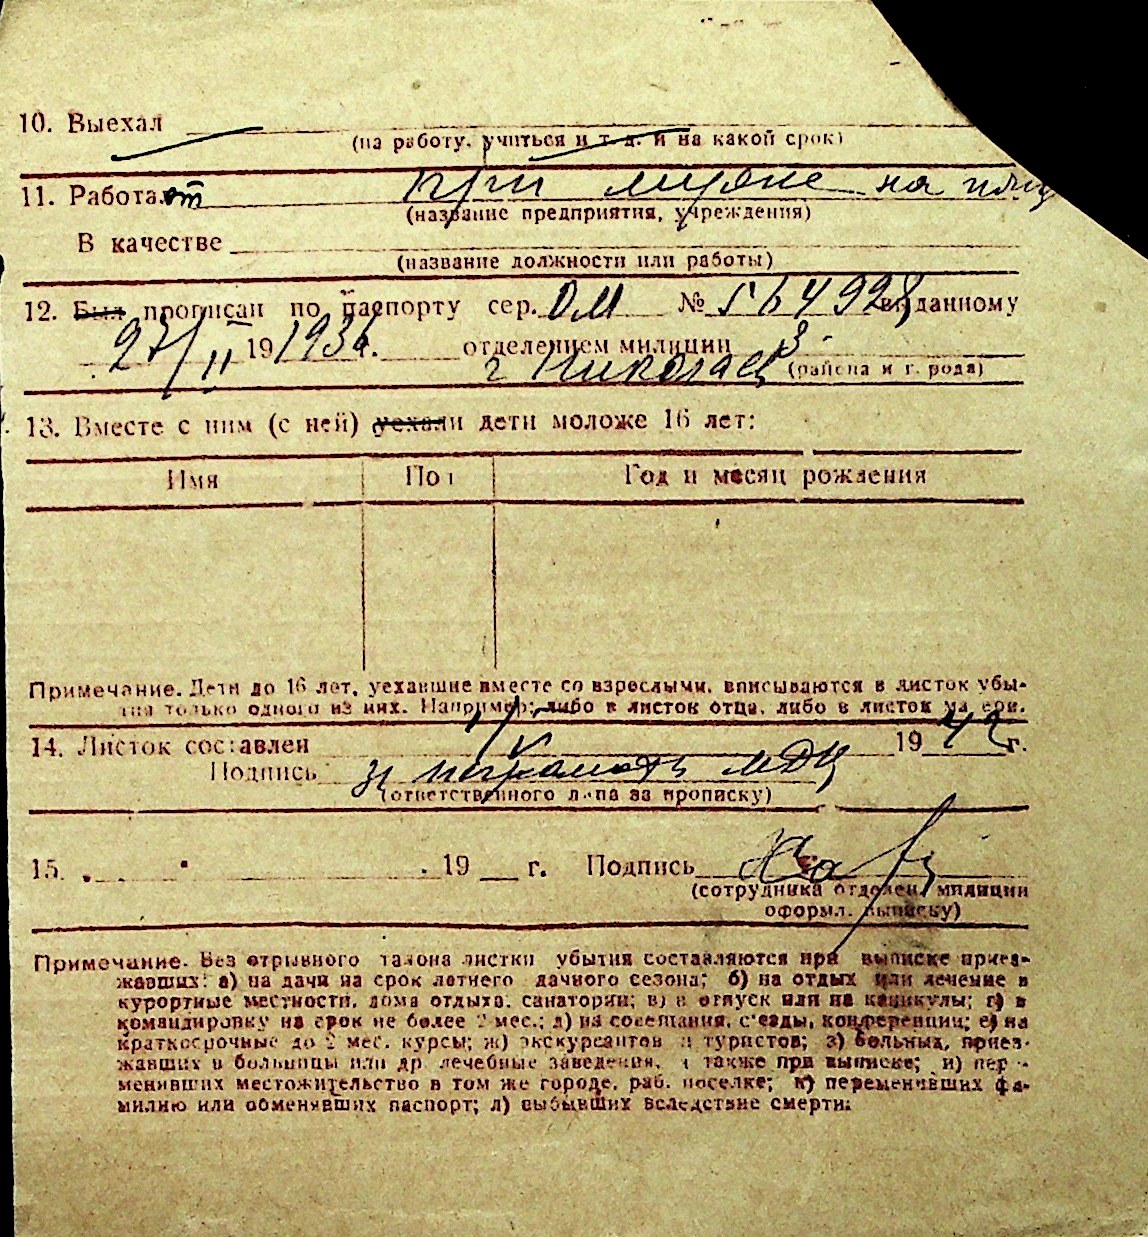 10. Выехал
(на работу, учиться и т. д. и на какой срок)
11. Работает при муже на
(название предприятия, учреждения)
В качестве
(название должности или работы)
12. Был прописан по паспорту сер. ОМ № 564928 выданному
27/II 19 1936. отделением милиции 3.
г Николаев (района и города)
13. Вместе с ним (с ней) уехали дети моложе 16 лет:
Имя Пол Год и месяц рождения
Примечание. Дети до 16 лет, уехавшие вместе со взрослыми, вписываются в листок убы-
тия только одного из них. Например: либо в листок отца, либо в листок матери.
14. Листок составлен 1/V 19 42 г.
Подпись
(ответственного лица за прописку)
15. 19 г. Подпись
(сотрудника отделен. милиции
оформл. выписку)
Примечание. Без отрывного талона листки убытия составляются при выписке приез-
жавших: а) на дачи на срок летнего дачного сезона; б) на отдых или лечение в
курортные местности, дома отдыха, санатории; в) в отпуск или на каникулы; г) в
командировку на срок не более 2 мес.; д) на совещания, с'езды, конференции; е) на
краткосрочные до 2 мес. курсы; ж) экскурсантов и туристов; з) больных, приез-
жавших в больницы или др лечебные заведения, а также при выписке; и) пере-
менивших местожительство в том же городе, раб. поселке; к) переменивших фа-
милию или обменявших паспорт; л) выбывших вследствие смерти.